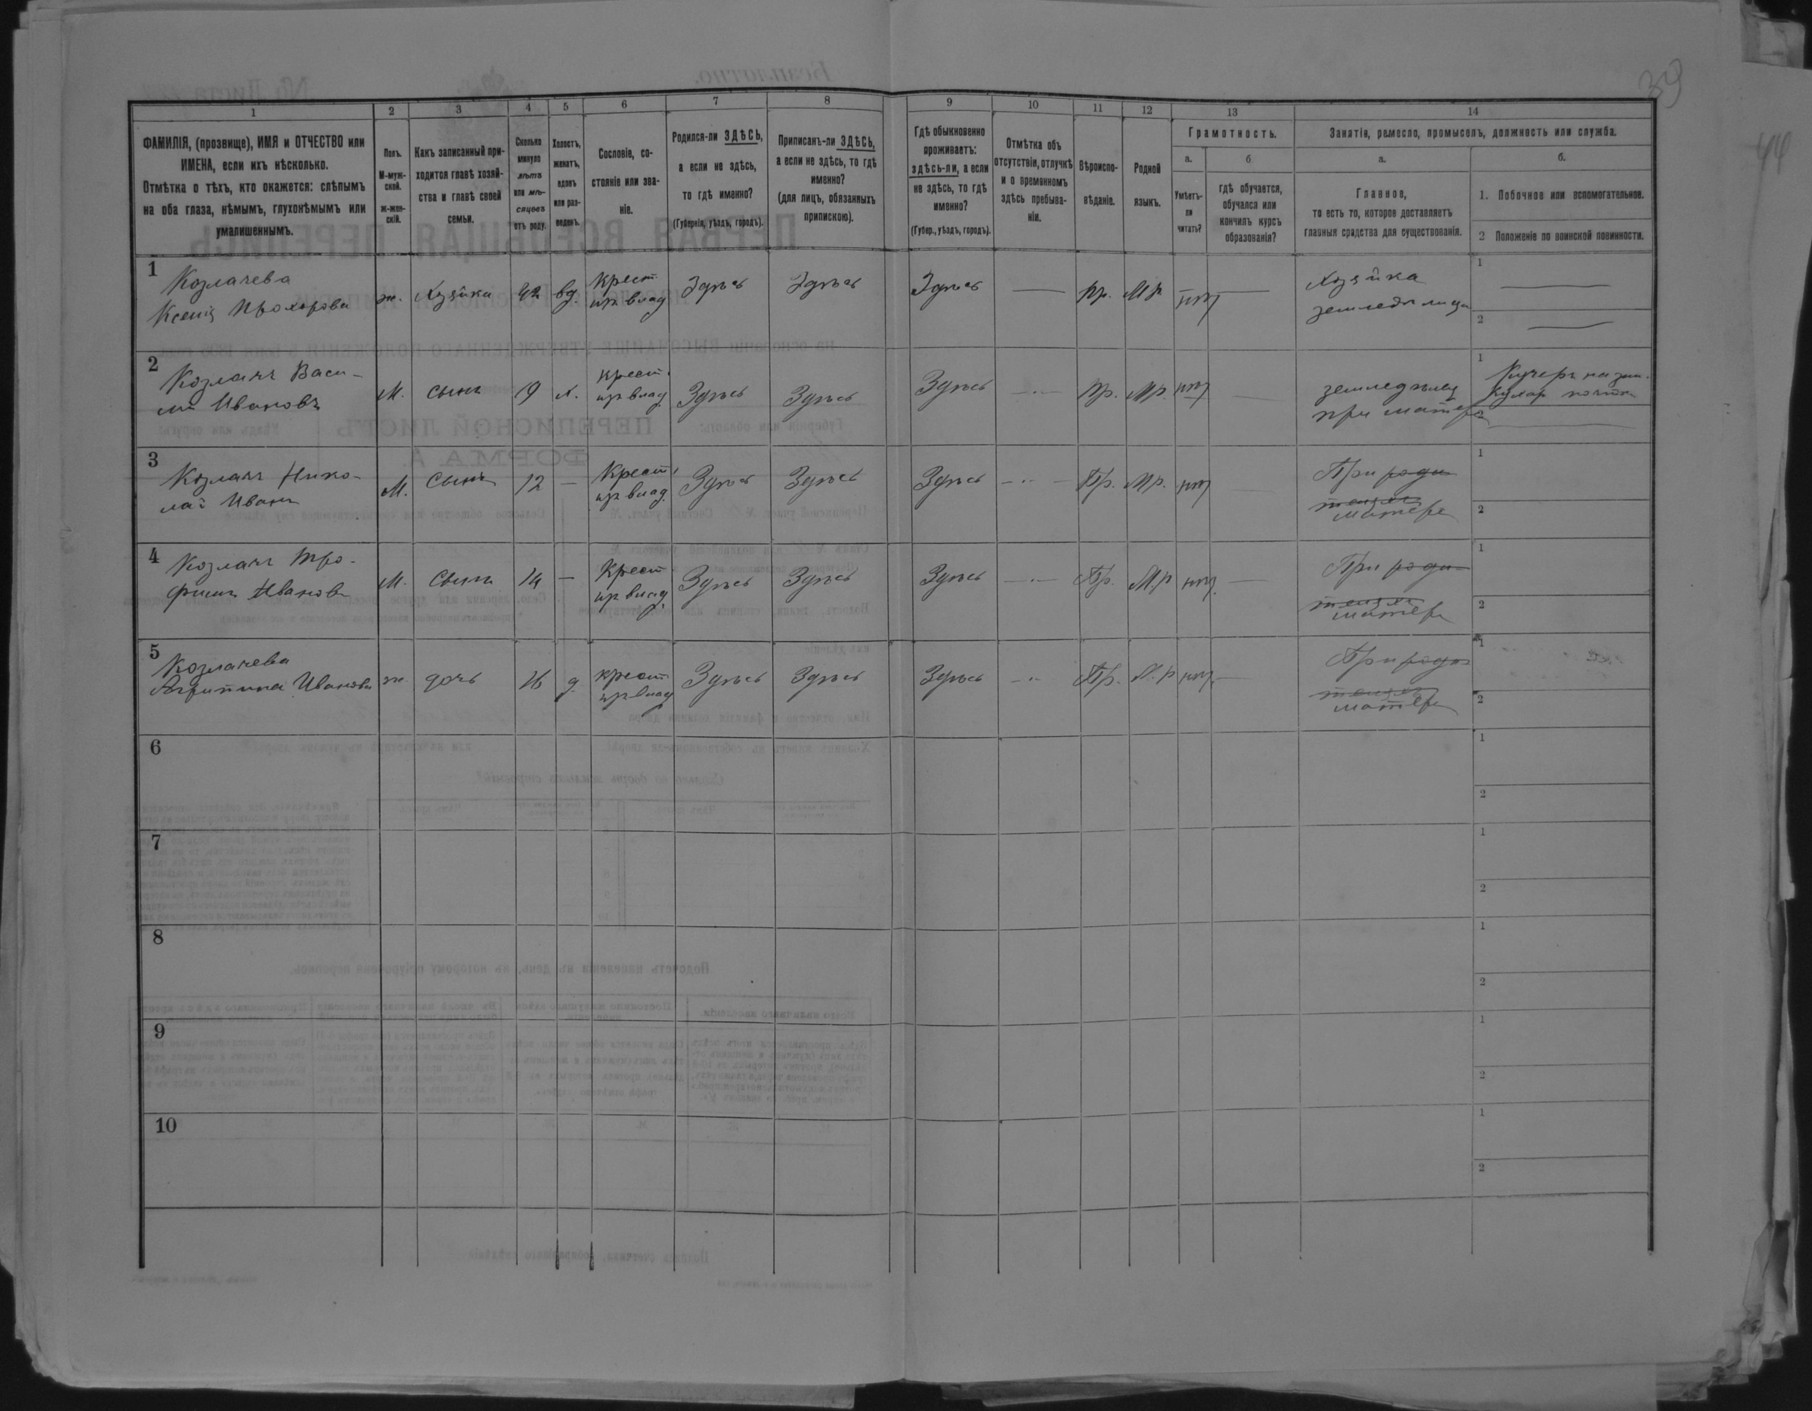 39
44
1 2 3 4 5 6 7 8 9 10 11 12 13 14
ФАМИЛІЯ, (прозвище), ИМЯ и ОТЧЕСТВО или
ИМЕНА, если ихъ нѣсколько.
Отмѣтка о тѣхъ, кто окажется: слѣпымъ
на оба глаза, нѣмымъ, глухонѣмымъ или
умалишеннымъ.
Полъ.
М-муж-
ской.
Ж-жен-
скій.
Какъ записанный при-
ходится главѣ хозяй-
ства и главѣ своей
семьи.
Сколько
минуло
лѣтъ
или мѣ-
сяцевъ
отъ роду.
Холостъ,
женатъ,
вдовъ
или раз-
веденъ.
Сословіе, со-
стояніе или зва-
ніе.
Родился-ли ЗДѢСЬ,
а если не здѣсь,
то гдѣ именно?
(Губернія, уѣздъ, городъ).
Приписанъ-ли ЗДѢСЬ,
а если не здѣсь, то гдѣ
именно?
(для лицъ, обязанныхъ
припискою).
Гдѣ обыкновенно
проживаетъ:
здѣсь-ли, а если
не здѣсь, то гдѣ
именно?
(Губер., уѣздъ, городъ).
Отмѣтка объ
отсутствіи, отлучкѣ
и о временномъ
здѣсь пребыва-
ніи.
Вѣроиспо-
вѣданіе.
Родной
языкъ.
Грамотность.
а.
Умѣетъ-
ли
читать?
б
гдѣ обучается,
обучался или
кончилъ курсъ
образованія?
Занятіе, ремесло, промыселъ, должность или служба.
а.
Главное,
то есть то, которое доставляетъ
главныя средства для существованія.
б.
1. Побочное или вспомогательное.
2 Положеніе по воинской повинности.
1 Козлачева ж. Хозяйка 42 вд. Крест Здѣсь Здѣсь Здѣсь — пр. Мр нѣт — Хозяйка 1 —
Ксенія Прохорова из влад земледѣлица 2 —
2 Козлачъ Васи- М. сынъ 19 х. крест. Здѣсь Здѣсь Здѣсь — пр. Мр. нѣт — земледѣлец 1 Кучеръ
лій Ивановъ из влад при матери 2 —
3 Козлачъ Нико- М. Сынъ 12 — Крест. Здѣсь Здѣсь Здѣсь — Пр. Мр. нѣт — При роди- 1
лай Иванъ из влад. телях матере 2
4 Козлачъ Тро- М. Сынъ 14 — Крест Здѣсь Здѣсь Здѣсь — Пр. Мр нѣт. — При роди- 1
фимъ Ивановъ из влад. телях матере 2
5 Козлачева ж. дочь 16 д. крест Здѣсь Здѣсь Здѣсь — Пр. М.р нѣт. — При роди 1
Агрипина Иванова из влад телях матере 2
6 1
2
7 1
2
8 1
2
9 1
2
10 1
2